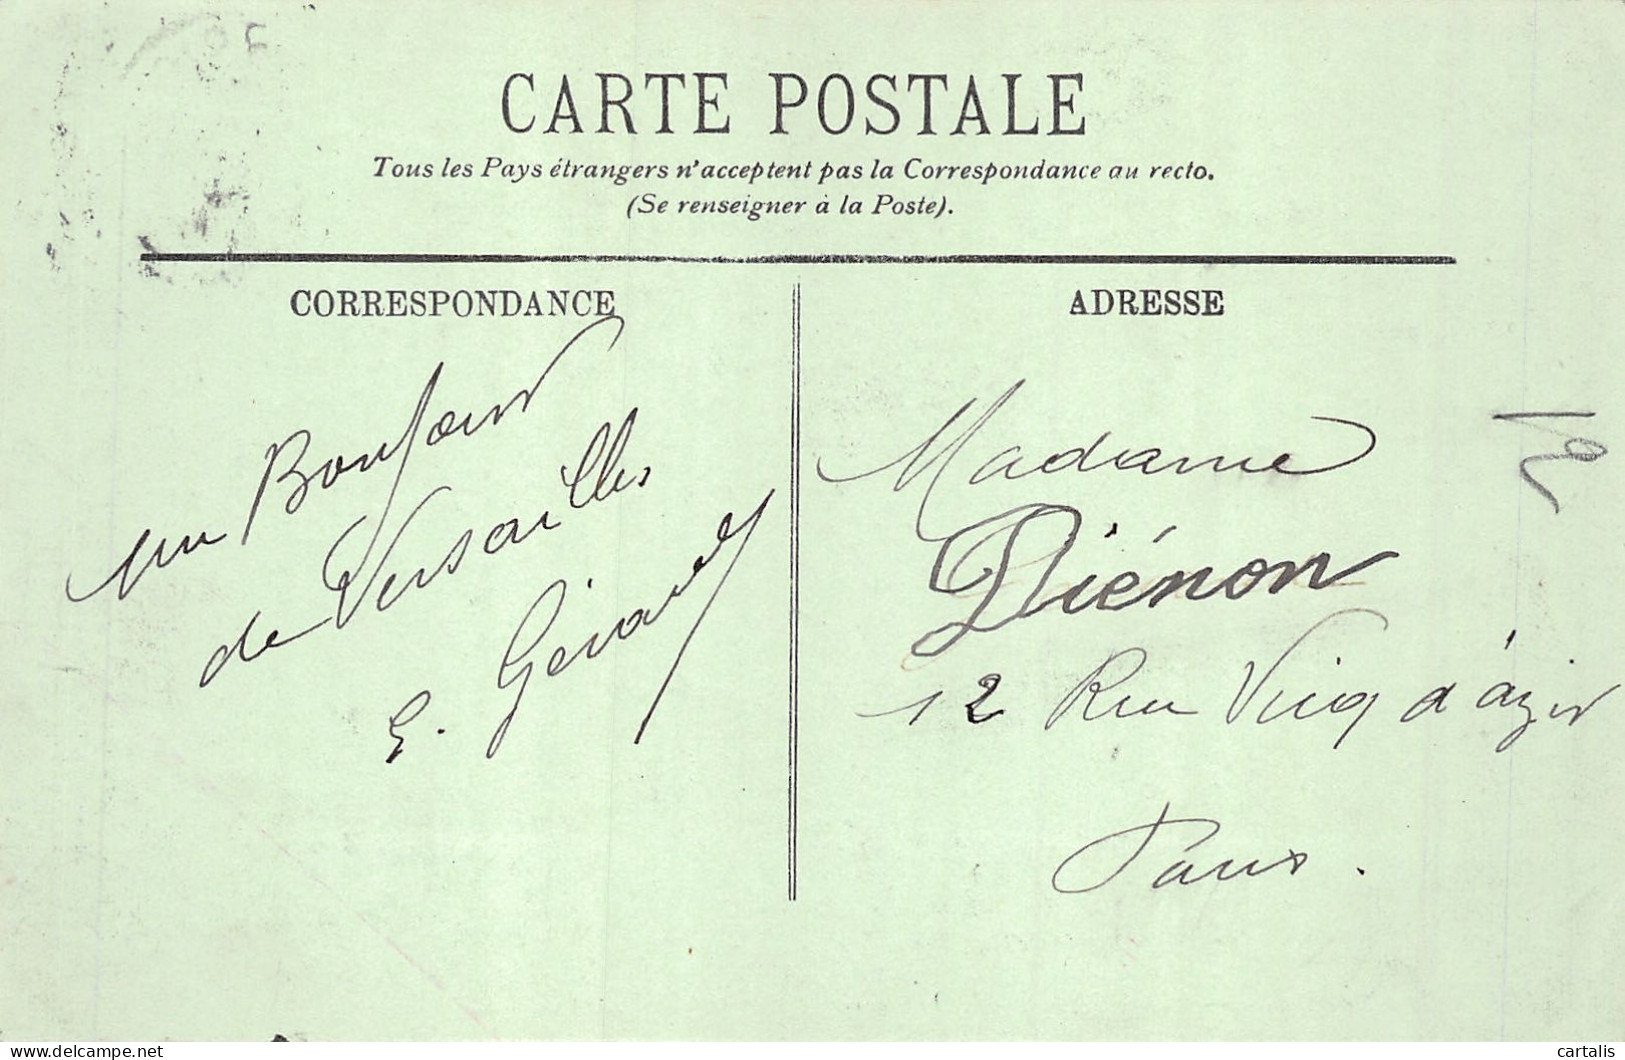 CARTE POSTALE
Tous les Pays étrangers n'acceptent pas la Correspondance au recto.
(Se renseigner à la Poste).
CORRESPONDANCE
un Bonjour
de Versailles
E. Gérard
ADRESSE
Madame
Diénon
12 Rue Vicq d'azir
Paris.
delcampe.net
cartalis